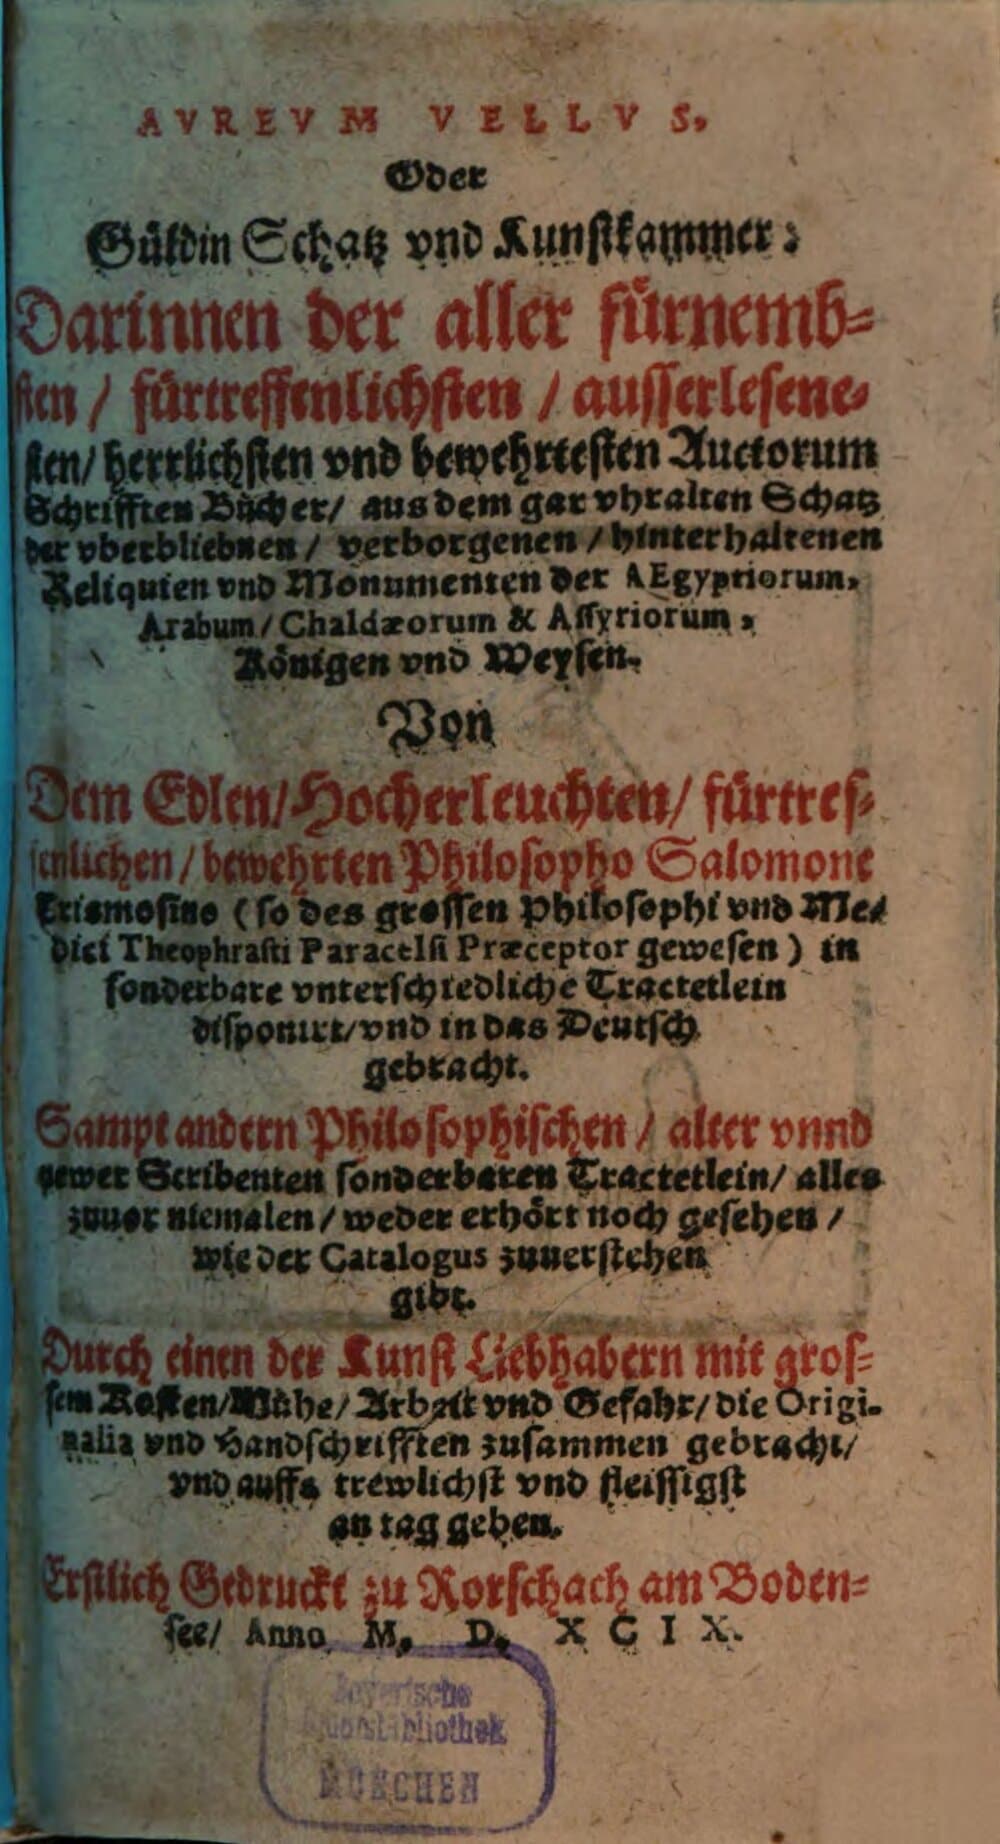 AVREVM VELLVS,
Oder
Güldin Schatz vnd Kunstkammer:
Darinnen der aller fürnemb-
sten / fürtreffenlichsten / ausserlesene-
sten/ herrlichsten vnd bewehrtesten Auctorum
Schrifften Bücher/ aus dem gar vhralten Schatz
der vberbliebnen / verborgenen / hinterhaltenen
Reliquien vnd Monumenten der AEgyptiorum,
Arabum/ Chaldæorum & Assyriorum,
Königen vnd Weysen.
Von
Dem Edlen/ Hocherleuchten/ fürtref-
fenlichen/ bewehrten Philosopho Salomone
Trismosino (so des grossen Philosophi vnd Me-
dici Theophrasti Paracelsi Præceptor gewesen) in
sonderbare vnterschiedliche Tractetlein
disponirt/ vnd in das Deutsch
gebracht.
Sampt andern Philosophischen / alter vnnd
newer Scribenten sonderbaren Tractetlein/ alles
zuuor niemalen/ weder erhört noch gesehen /
wie der Catalogus zuuerstehen
gibt.
Durch einen der Kunst Liebhabern mit gros-
sem Kosten/ Mühe/ Arbeit vnd Gefahr/ die Origi-
nalia vnd Handschrifften zusammen gebracht/
vnd auffs trewlichst vnd fleissigst
an tag geben.
Erstlich Gedruckt zu Rorschach am Boden-
see/ Anno M. D. XCIX.
Bayerische
Staatsbibliothek
MÜNCHEN